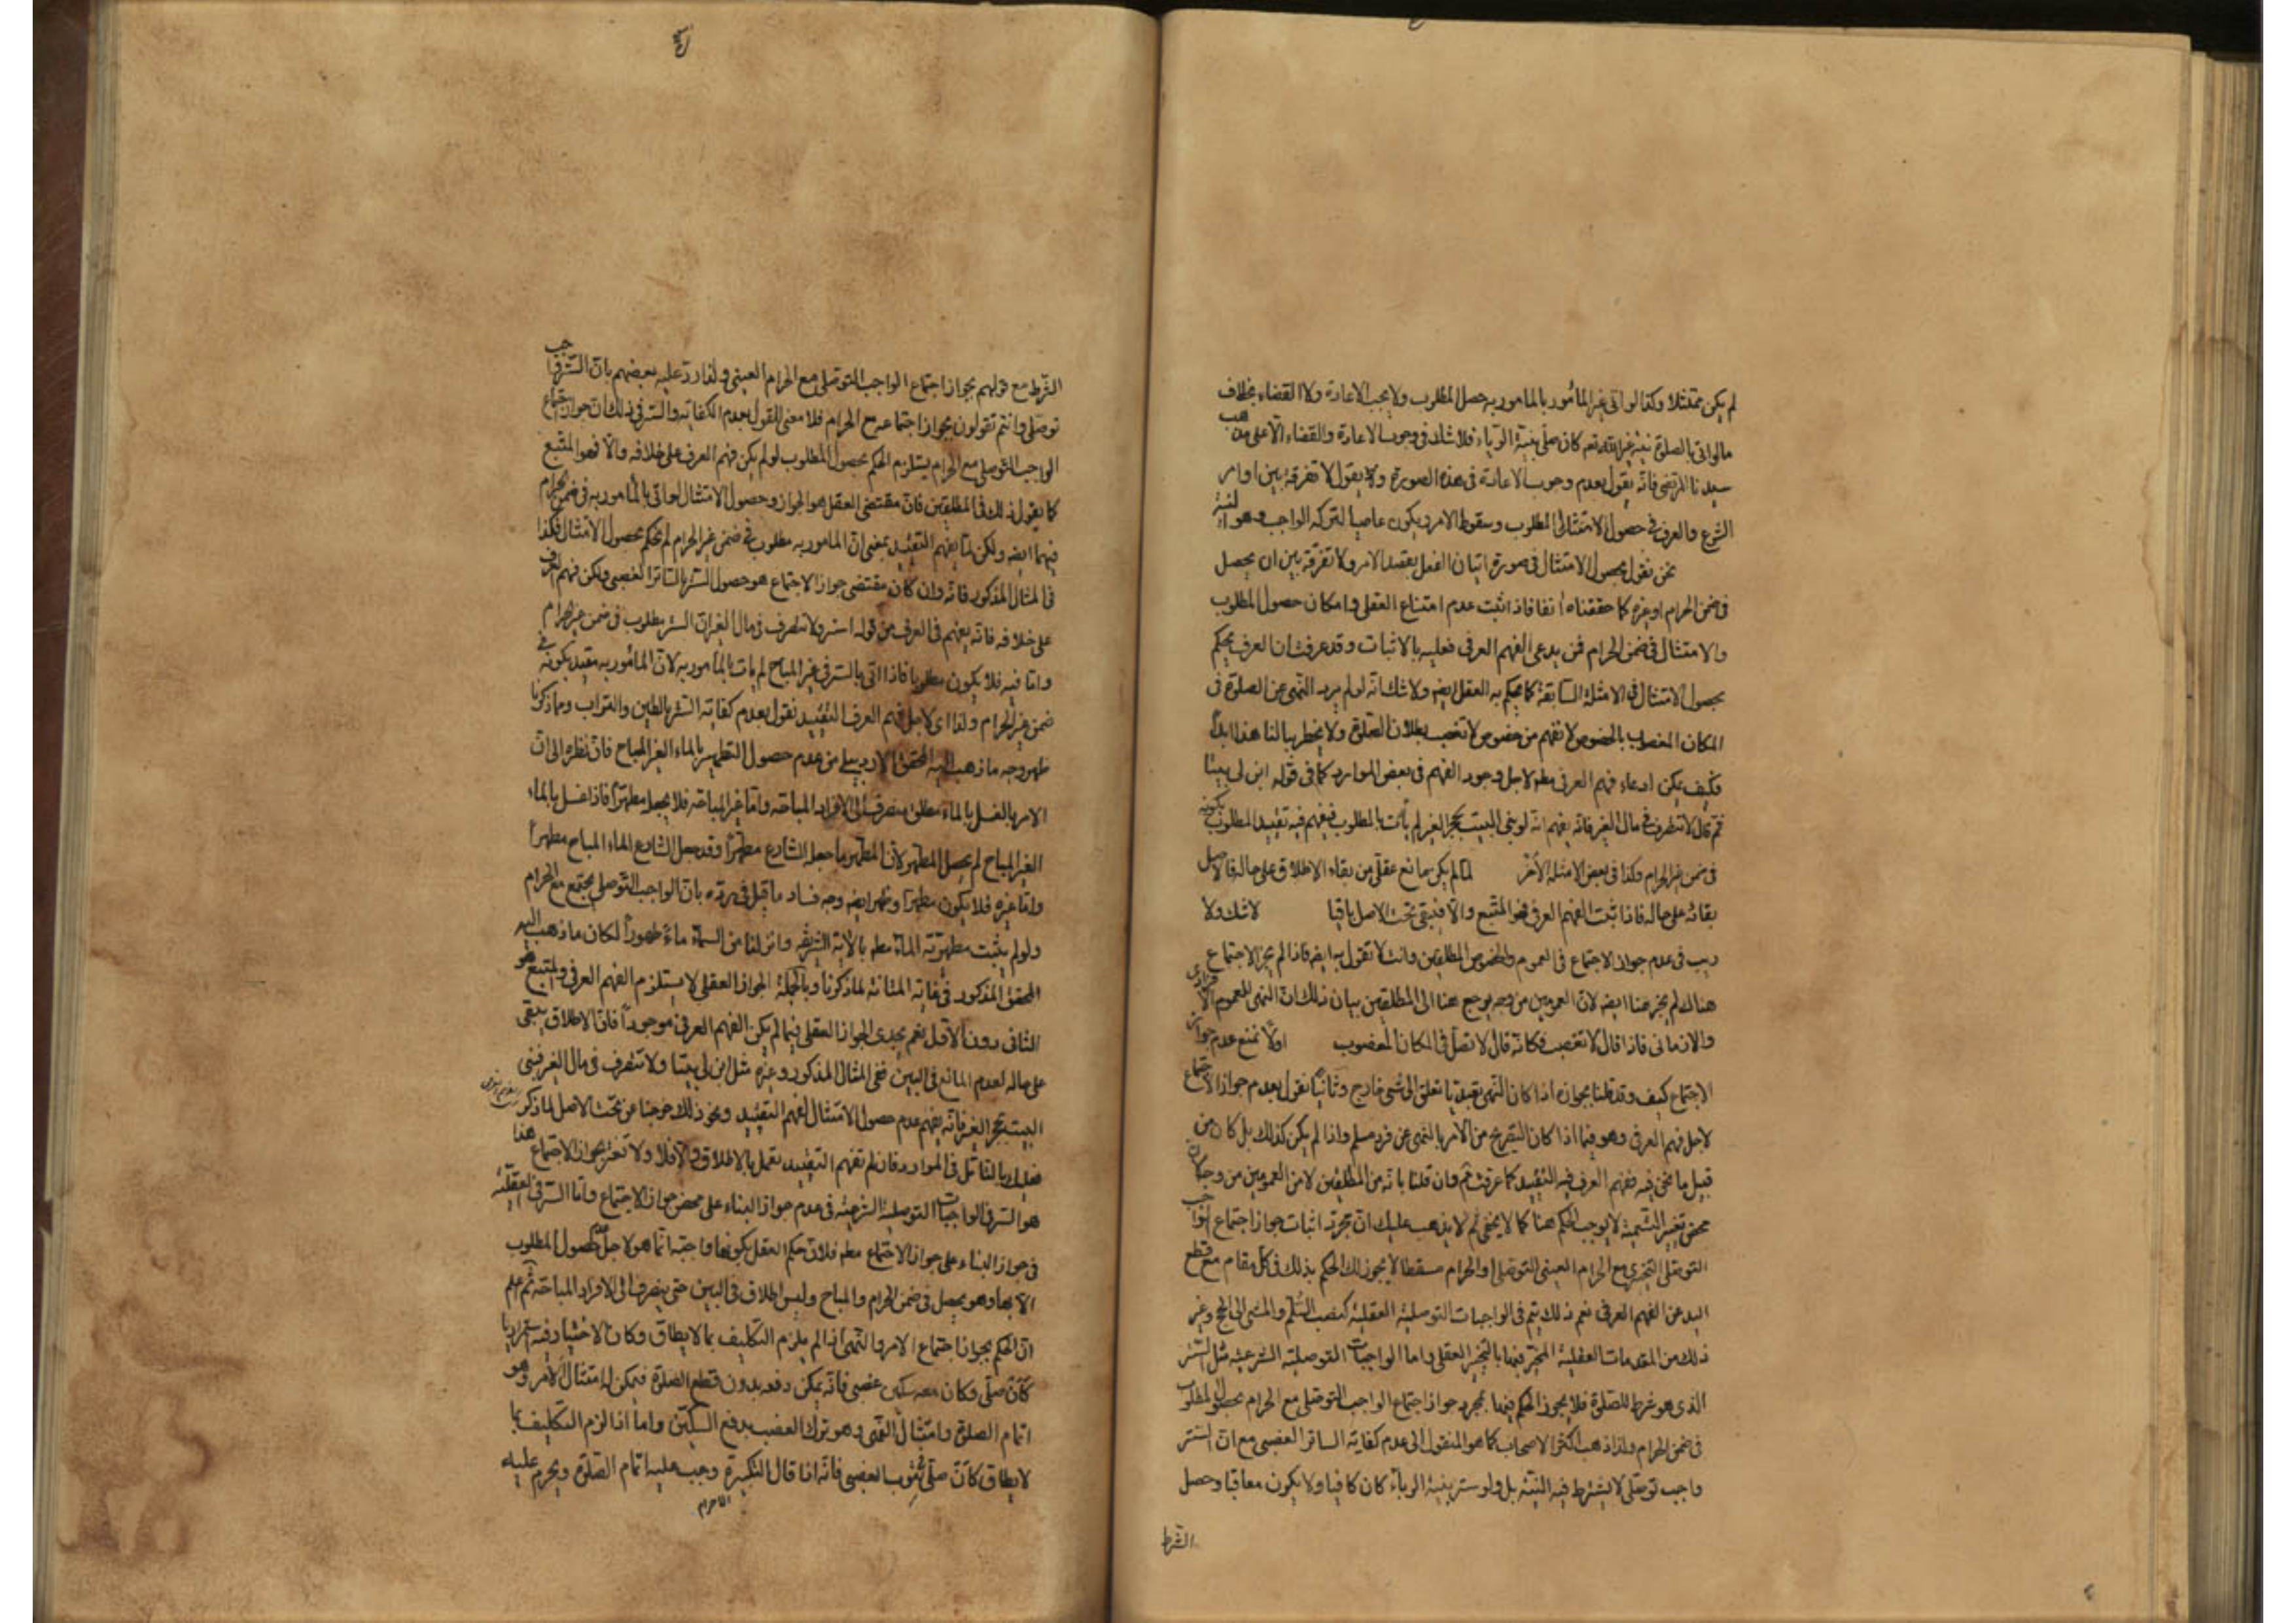 لم يكن ممتثلا وكذا لو اتى غير المأمور بالمامور به حصل المطلوب ولا يجب الاعادة ولا القضاء بخلاف
ما لو اتى بالصلوة نية غير الله تعه كان صلى بنية الرياء فلا شك فى وجوب الاعادة والقضاء الا على مذهب
سيدنا المرتضى فانه يقول بعدم وجوب الاعادة فى هذه الصورة ولا يقول لا تفرقة بين اوامر
الشرع والعرف فى حصول الامتثال المطلوب وسقوط الامر ويكون عاصيا لتركه الواجب وهو النية
نحن نقول بحصول الامتثال فى صورة اتيان الفعل بقصد الامر ولا تفرقة بين ان يحصل
فى ضمن الحرام او غيره كما حققناه انفا فاذا ثبت عدم امتناع العقلى وامكان حصول المطلوب
والامتثال فى ضمن الحرام فمن يدعى الفهم العرفى فعليه بالاثبات وقد عرفت ان العرف يحكم
بحصول الامتثال فى الامثلة السابقة كما يحكم به العقل ايضه ولا شك انه لو لم يرد النهى عن الصلوة فى
المكان المغصوب بالخصوص لا نفهم من خصوص لا تغصب بطلان الصلوة ولا يخطر ببالنا هذا ابدا
فكيف يمكن ادعاء فهم العرفى مطه لاجل وجود الفهم فى بعض الموارد كما فى قوله ابن لى بيتا
ثم قال لا تتصرف فى مال الغير فانه يفهم انه لو بنى البيت بحجر الغير لم يأت بالمطلوب فيفهم فيه تقييد المطلوب بكونه
فى ضمن غير الحرام وكذا فى بعض الامثلة الاخر لما لم يكن مانع عقلى من بقاء الاطلاق على حاله فالاصل
بقائه على حاله فاذا ثبت الفهم العرفى فهو المتبع والا فيبقى تحت الاصل باقيا لا شك ولا
ريب فى عدم جواز الاجتماع فى العموم والخصوص المطلقين وانت لا تقول به ايضه فاذا لم يجز الاجتماع
هناك لم يجز هنا ايضه لان العمومين من وجه يرجع هنا الى المطلقين بيان ذلك ان النهى للعموم الافرادى
والازمانى فاذا قال لا تغصب فكانه قال لا تصل فى المكان المغصوب اولا نمنع عدم جواز
الاجتماع كيف وقد قلنا بجوازه اذا كان النهى تعبديا تعلق الى شىء خارج وثانيا نقول بعدم جواز الاجتماع
لاجل فهم العرفى وهو فيما اذا كان التصريح من الامر بالنهى عن فرد مسلم واذا لم يكن كذلك بل كان من
قبيل ما نحن فيه ففهم العرفى فيه التقييد كما عرفت ثم وان قلنا بانه من المطلقين لا من العمومين من وجه فان
محض تغيير التسمية لا يوجب الحكم هنا كما لا يخفى ثم لا يذهب عليك ان مجرد اثبات جواز اجتماع الواجب
التوصلى التخييرى مع الحرام العينى التوصلى او الحرام مسقطا لا يجوز لك الحكم بذلك فى كل مقام مع قطع
اليد عن الفهم العرفى نعم ذلك يتم فى الواجبات التوصلية العقلية كنصب السلم والمشى الى الحج وغير
ذلك من المقدمات العقلية المخير فيها بالتخيير العقلى واما الواجبات التوصلية الشرعية مثل الستر
الذى هو شرط للصلوة فلا يجوز الحكم فيها بمجرد جواز اجتماع الواجب التوصلى مع الحرام بحصول المطلوب
فى ضمن الحرام ولذا ذهب اكثر الاصحاب كما هو المنقول الى عدم كفاية الساتر الغصبى مع ان الستر
واجب توصلى لا يشترط فيه النية بل ولو ستر بنية الرياء كان كافيا ولا يكون معاقبا وحصل
الشرط
الشرط مع قولهم بجواز اجتماع الواجب التوصلى مع الحرام العينى ولذا رد عليه بعضهم بان الستر واجب
توصلى وانتم تقولون بجواز اجتماعه مع الحرام فلا معنى للقول بعدم الكفاية والسر فى ذلك ان جواز اجتماع
الواجب التوصلى مع الحرام يستلزم الحكم بحصول المطلوب لو لم يكن فهم العرف على خلافه والا فهو المتبع
كما يقول ذلك فى المطلقين فان مقتضى العقل هو الجواز وحصول الامتثال لو اتى بالمأمور به فى ضمن الحرام
فيهما ايضه ولكن لما يفهم التقييد بمعنى ان المامور به مطلوب فى ضمن غير الحرام لم نحكم بحصول الامتثال فكذا
فى المثال المذكور فانه وان كان مقتضى جواز الاجتماع هو حصول الستر بالساتر الغصبى ولكن فهم العرف
على خلافه فانه يفهم فى العرف من قوله استر ولا تتصرف فى مال الغير ان الستر مطلوب فى ضمن غير الحرام
واما فيه فلا يكون مطلوبا فاذا اتى بالستر فى غير المباح لم يات بالمأمور به لان المأمور به مقيد بكونه فى
ضمن غير الحرام ولذا اى لاجل فهم العرف التقييد نقول بعدم كفاية الستر بالطين والتراب ومما ذكرنا
ظهر وجه ما ذهب اليه المحقق الاردبيلى من عدم حصول التطهير بالماء الغير المباح فان نظره الى ان
الامر بالغسل بالماء مطلق منصرف الى الافراد المباحة واما غير المباحة فلا يجعل مطهرا فاذا غسل بالماء
الغير المباح لم يحصل المطهر لان المطهر ما جعله الشارع مطهرا وقد جعل الشارع الماء المباح مطهرا
واما غيره فلا يكون مطهرا وظهر ايضه وجه فساد ما قيل فى رده بان الواجب التوصلى يجتمع مع الحرام
ولو لم يثبت مطهرية الماء مطه بالاية الشريفة وانزلنا من السماء ماء طهورا لكان ما ذهب اليه
المحقق المذكور فى غاية المتانة لما ذكرنا وبالجملة الجواز العقلى لا يستلزم الفهم العرفى والمتبع هو
الثانى دون الاول نعم يجدى الجواز العقلى فيما لم يكن الفهم العرفى موجودا فان الاطلاق يبقى
على حاله لعدم المانع فى البين ففى المثال المذكور وغيره مثل ابن لى بيتا ولا تتصرف فى مال الغير فبنى
البيت بحجر الغير فانه يفهم عدم حصول الامتثال لفهم التقييد ونحو ذلك خرجنا عن تحت الاصل لما ذكر
فعليك بالتامل فى الموارد فان لم تفهم التقييد تعمل بالاطلاق والا فلا ولا تغتر بجواز الاجتماع هذا
هو السر فى الواجبات التوصلية الشرعية فى عدم جواز البناء على محض جواز الاجتماع واما السر فى العقلية
فى جواز البناء على جواز الاجتماع مطه فلان حكم العقل بكونها واجبة انما هو لاجل حصول المطلوب
الا بها وهو يحصل فى ضمن الحرام والمباح وليس اطلاق فى البين حتى ينصرف الى الافراد المباحة ثم اعلم
ان الحكم بجواز اجتماع الامر والنهى اذا لم يلزم التكليف بما لا يطاق وكان الاختيار فيه
كان صلى وكان معه سكين غصبى فانه يمكن دفعه بدون قطع الصلوة فيمكن له امتثال الامر وهو
اتمام الصلوة وامتثال النهى وهو ترك الغصب بدفع السكين واما اذا لزم التكليف بما
لا يطاق كان صلى بثوب الغصبى فانه اذا قال التكبيرة وجب عليه اتمام الصلوة ويحرم عليه
الاحرام